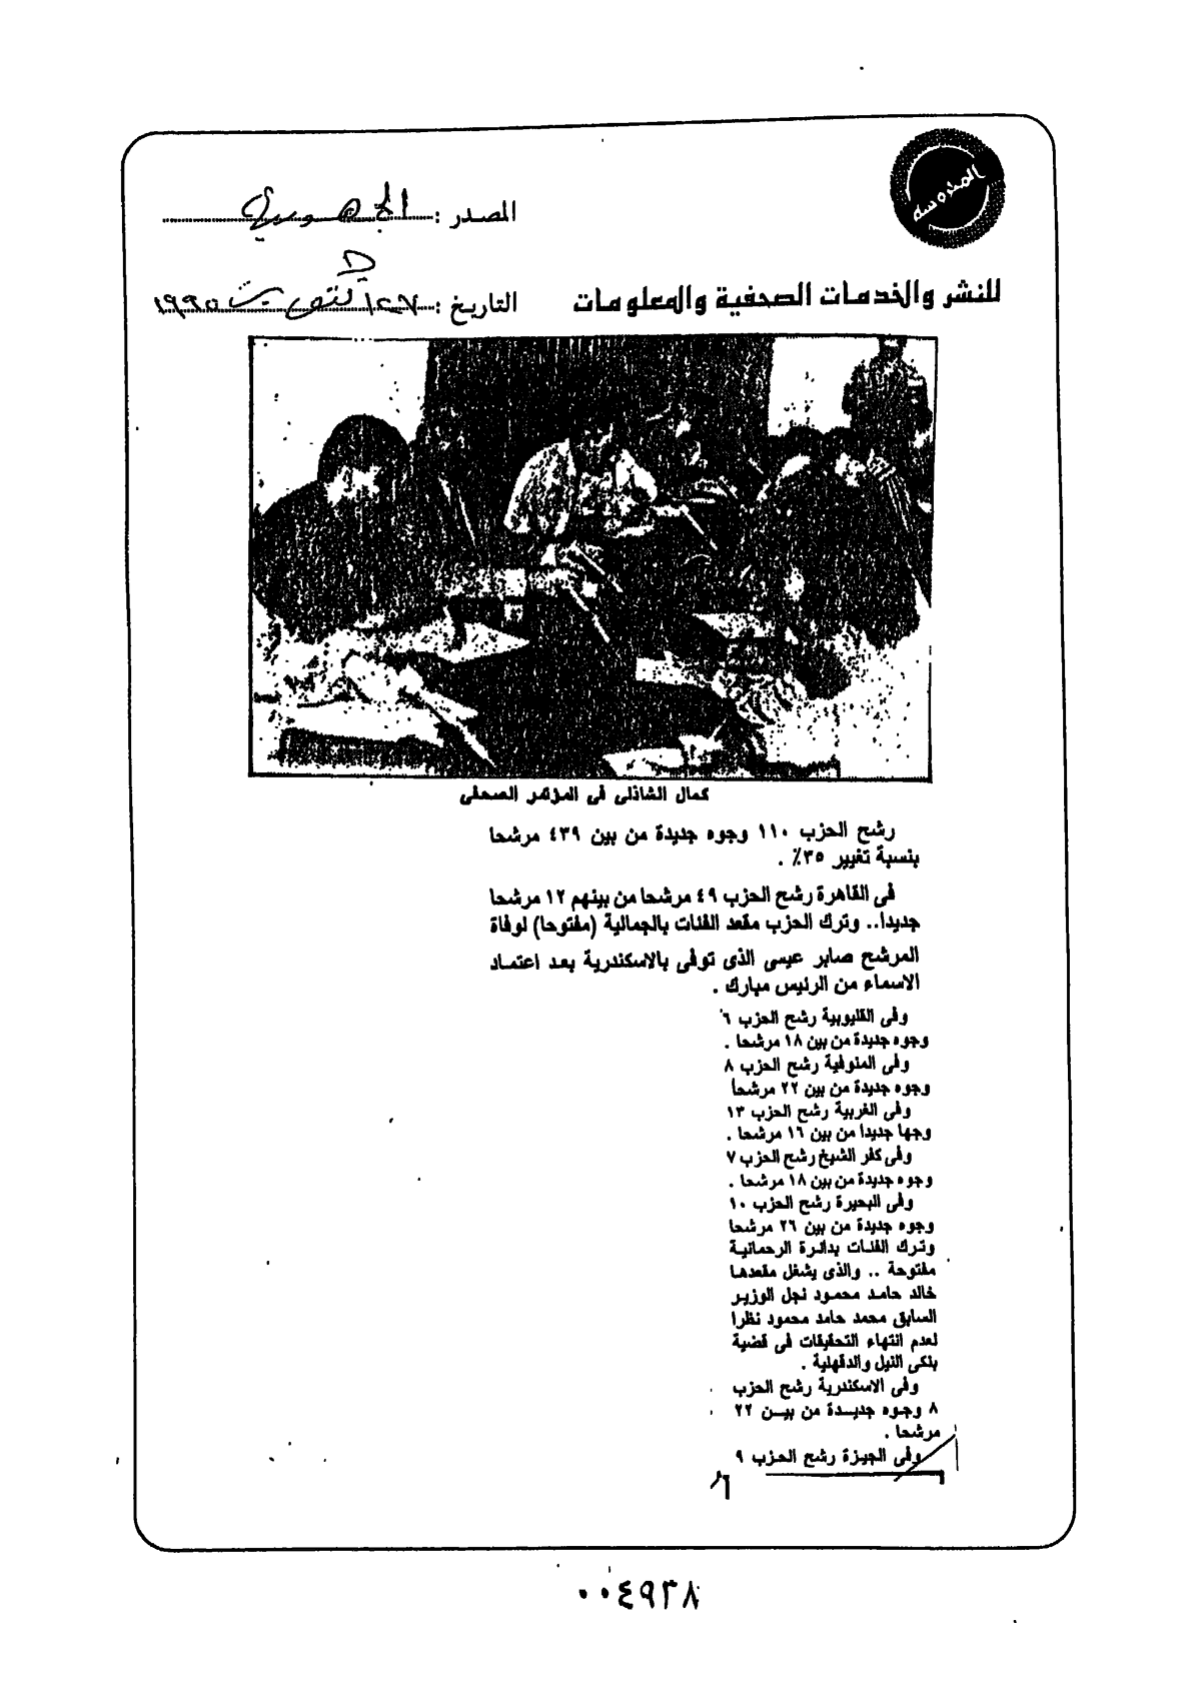 المحروسة
المصدر : الجمهورية
للنشر والخدمات الصحفية والمعلومات
التاريخ : ١٩٩٥
كمال الشاذلى فى المؤتمر الصحفى
رشح الحزب ١١٠ وجوه جديدة من بين ٤٣٩ مرشحا
بنسبة تغيير ٣٥٪ .
فى القاهرة رشح الحزب ٤٩ مرشحا من بينهم ١٢ مرشحا
جديدا.. وترك الحزب مقعد الفئات بالجمالية (مفتوحا) لوفاة
المرشح صابر عيسى الذى توفى بالاسكندرية بعد اعتماد
الاسماء من الرئيس مبارك .
وفى القليوبية رشح الحزب ٦
وجوه جديدة من بين ١٨ مرشحا .
وفى المنوفية رشح الحزب ٨
وجوه جديدة من بين ٢٢ مرشحا
وفى الغربية رشح الحزب ١٣
وجها جديدا من بين ١٦ مرشحا .
وفى كفر الشيخ رشح الحزب ٧
وجوه جديدة من بين ١٨ مرشحا .
وفى البحيرة رشح الحزب ١٠
وجوه جديدة من بين ٢٦ مرشحا
وترك الفئات بدائرة الرحمانية
مفتوحة .. والذى يشغل مقعدها
خالد حامد محمود نجل الوزير
السابق محمد حامد محمود نظرا
لعدم انتهاء التحقيقات فى قضية
بنكى النيل والدقهلية .
وفى الاسكندرية رشح الحزب
٨ وجوه جديدة من بين ٢٢
مرشحا .
وفى الجيزة رشح الحزب ٩
٠٠٤٩٣٨